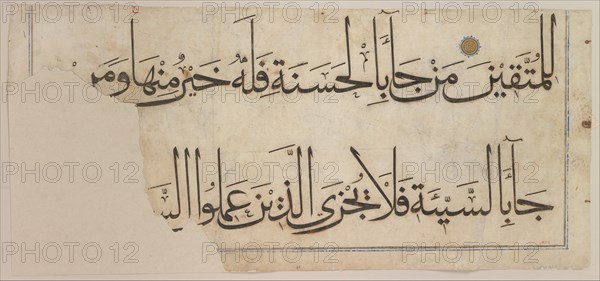 للمتقين من جآء بالحسنة فله خير منها ومن
جآء بالسيئة فلا يجزى الذين عملوا السيـ
PHOTO 12